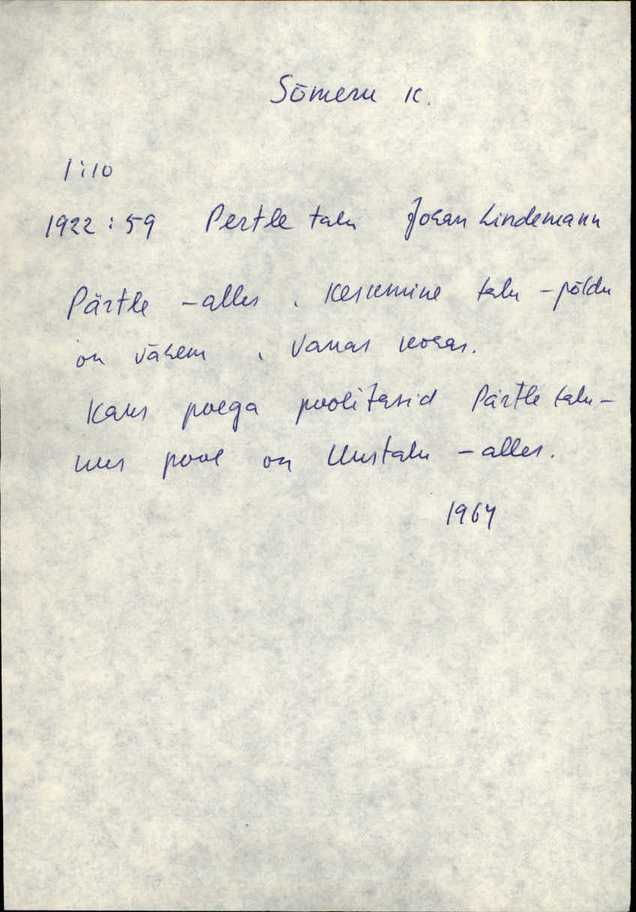 Sõmeru k.
1:10
1922:59 Pertle talu Johan Lindemann
Pärtle - alles. Keskmine talu - põldu
on vähem. Vanas kohas.
Kaks poega poolitasid Pärtle talu -
uus pool on Uustalu - alles.
1964